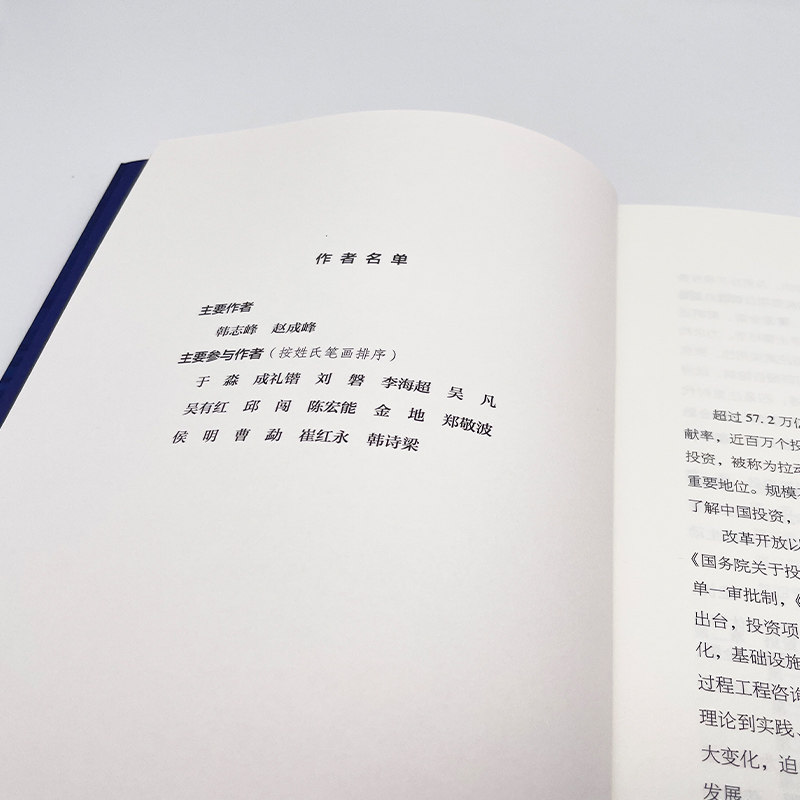 作者名单
主要作者
韩志峰 赵成峰
主要参与作者（按姓氏笔画排序）
于 淼 成礼锴 刘 磐 李海超 吴 凡
吴有红 邱 闯 陈宏能 金 地 郑敬波
侯 明 曹 勐 崔红永 韩诗梁
超过57.2万亿
献率，近百万个投
投资，被称为拉动
重要地位。规模
了解中国投资，
改革开放以
《国务院关于投
单一审批制，《
出台，投资项
化，基础设施
过程工程咨询
理论到实践、
大变化，迫
发展